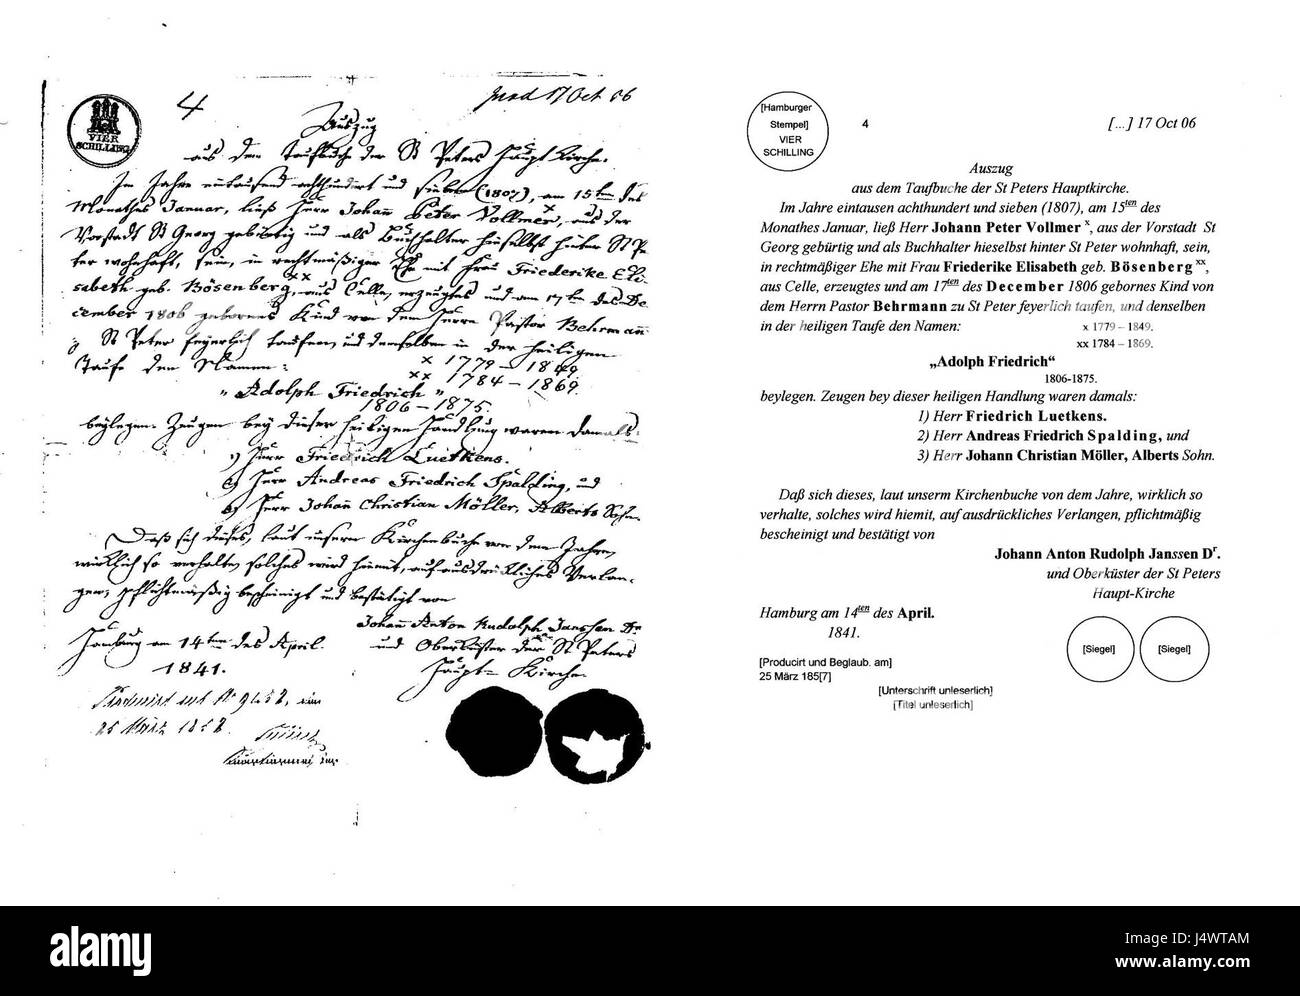 4
17 Oct 06
VIER
SCHILLING
Auszug
aus dem Taufbuche der St Peters Haupt Kirche.
Im Jahre eintausend achthundert und sieben (1807), am 15ten des
Monathes Januar, ließ Herr Johann Peter Vollmer x, aus der
Vorstadt St Georg gebürtig und als Buchhalter hieselbst hinter St Pe-
ter wohnhaft, sein, in rechtmäßiger Ehe mit Frau Friederike Eli-
sabeth geb. Bösenberg xx, aus Celle, erzeugtes und am 17ten des De-
cember 1806 gebornes Kind von dem Herrn Pastor Behrmann
z St Peter feyerlich taufen, und denselben in der heiligen
Taufe den Namen:
x 1779 – 1849
xx 1784 – 1869.
„Adolph Friedrich“
1806 – 1875.
beylegen. Zeugen bey dieser heiligen Handlung waren damals:
1) Herr Friedrich Luetkens.
2) Herr Andreas Friedrich Spalding, und
3) Herr Johann Christian Möller, Alberts Sohn.
Daß sich dieses, laut unserm Kirchenbuche von dem Jahre,
wirklich so verhalte, solches wird hiemit, auf ausdrückliches Verlan-
gen, pflichtmäßig bescheinigt und bestätigt von
Johann Anton Rudolph Janssen Dr
und Oberküster der St Peters
Haupt- Kirche.
Hamburg am 14ten des April.
1841.
25 März 1857
[Hamburger
Stempel]
VIER
SCHILLING
4
[...] 17 Oct 06
Auszug
aus dem Taufbuche der St Peters Hauptkirche.
Im Jahre eintausen achthundert und sieben (1807), am 15ten des
Monathes Januar, ließ Herr Johann Peter Vollmer x, aus der Vorstadt St
Georg gebürtig und als Buchhalter hieselbst hinter St Peter wohnhaft, sein,
in rechtmäßiger Ehe mit Frau Friederike Elisabeth geb. Bösenberg xx,
aus Celle, erzeugtes und am 17ten des December 1806 gebornes Kind von
dem Herrn Pastor Behrmann zu St Peter feyerlich taufen, und denselben
in der heiligen Taufe den Namen:
x 1779 – 1849.
xx 1784 – 1869.
„Adolph Friedrich“
1806-1875.
beylegen. Zeugen bey dieser heiligen Handlung waren damals:
1) Herr Friedrich Luetkens.
2) Herr Andreas Friedrich Spalding, und
3) Herr Johann Christian Möller, Alberts Sohn.
Daß sich dieses, laut unserm Kirchenbuche von dem Jahre, wirklich so
verhalte, solches wird hiemit, auf ausdrückliches Verlangen, pflichtmäßig
bescheinigt und bestätigt von
Johann Anton Rudolph Janssen Dr.
und Oberküster der St Peters
Haupt-Kirche
Hamburg am 14ten des April.
1841.
[Siegel]
[Siegel]
[Producirt und Beglaub. am]
25 März 185[7]
[Unterschrift unleserlich]
[Titel unleserlich]
alamy
Image ID: J4WTAM
www.alamy.com